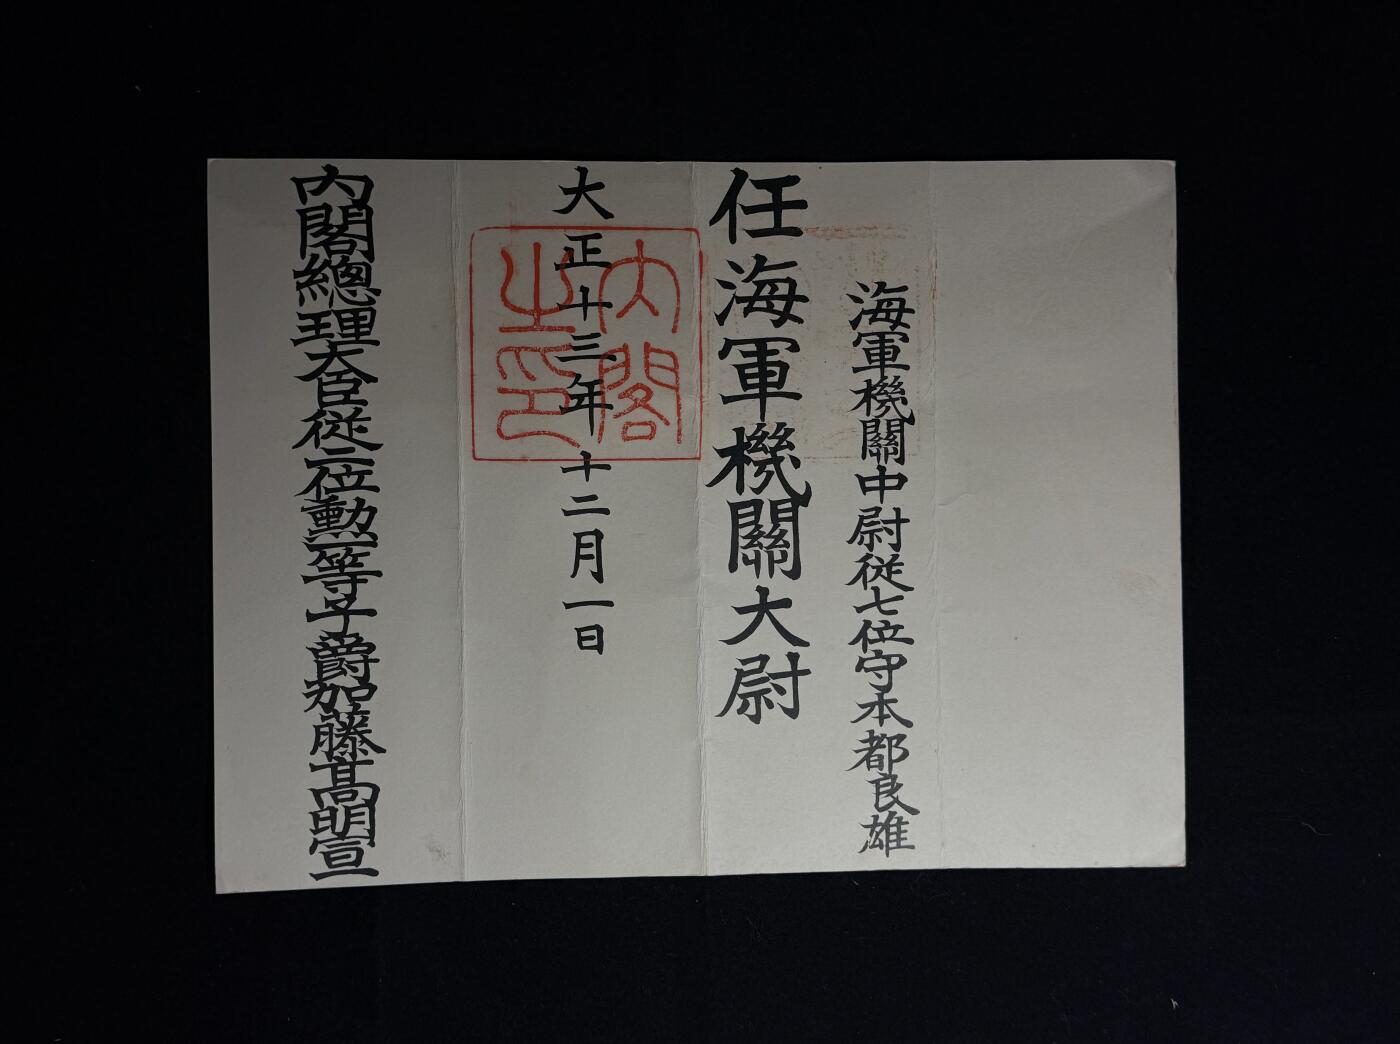 海軍機關中尉従七位守本都良雄
任海軍機關大尉
大正十三年十二月一日
内閣之印
内閣總理大臣従二位勲一等子爵加藤髙明宣